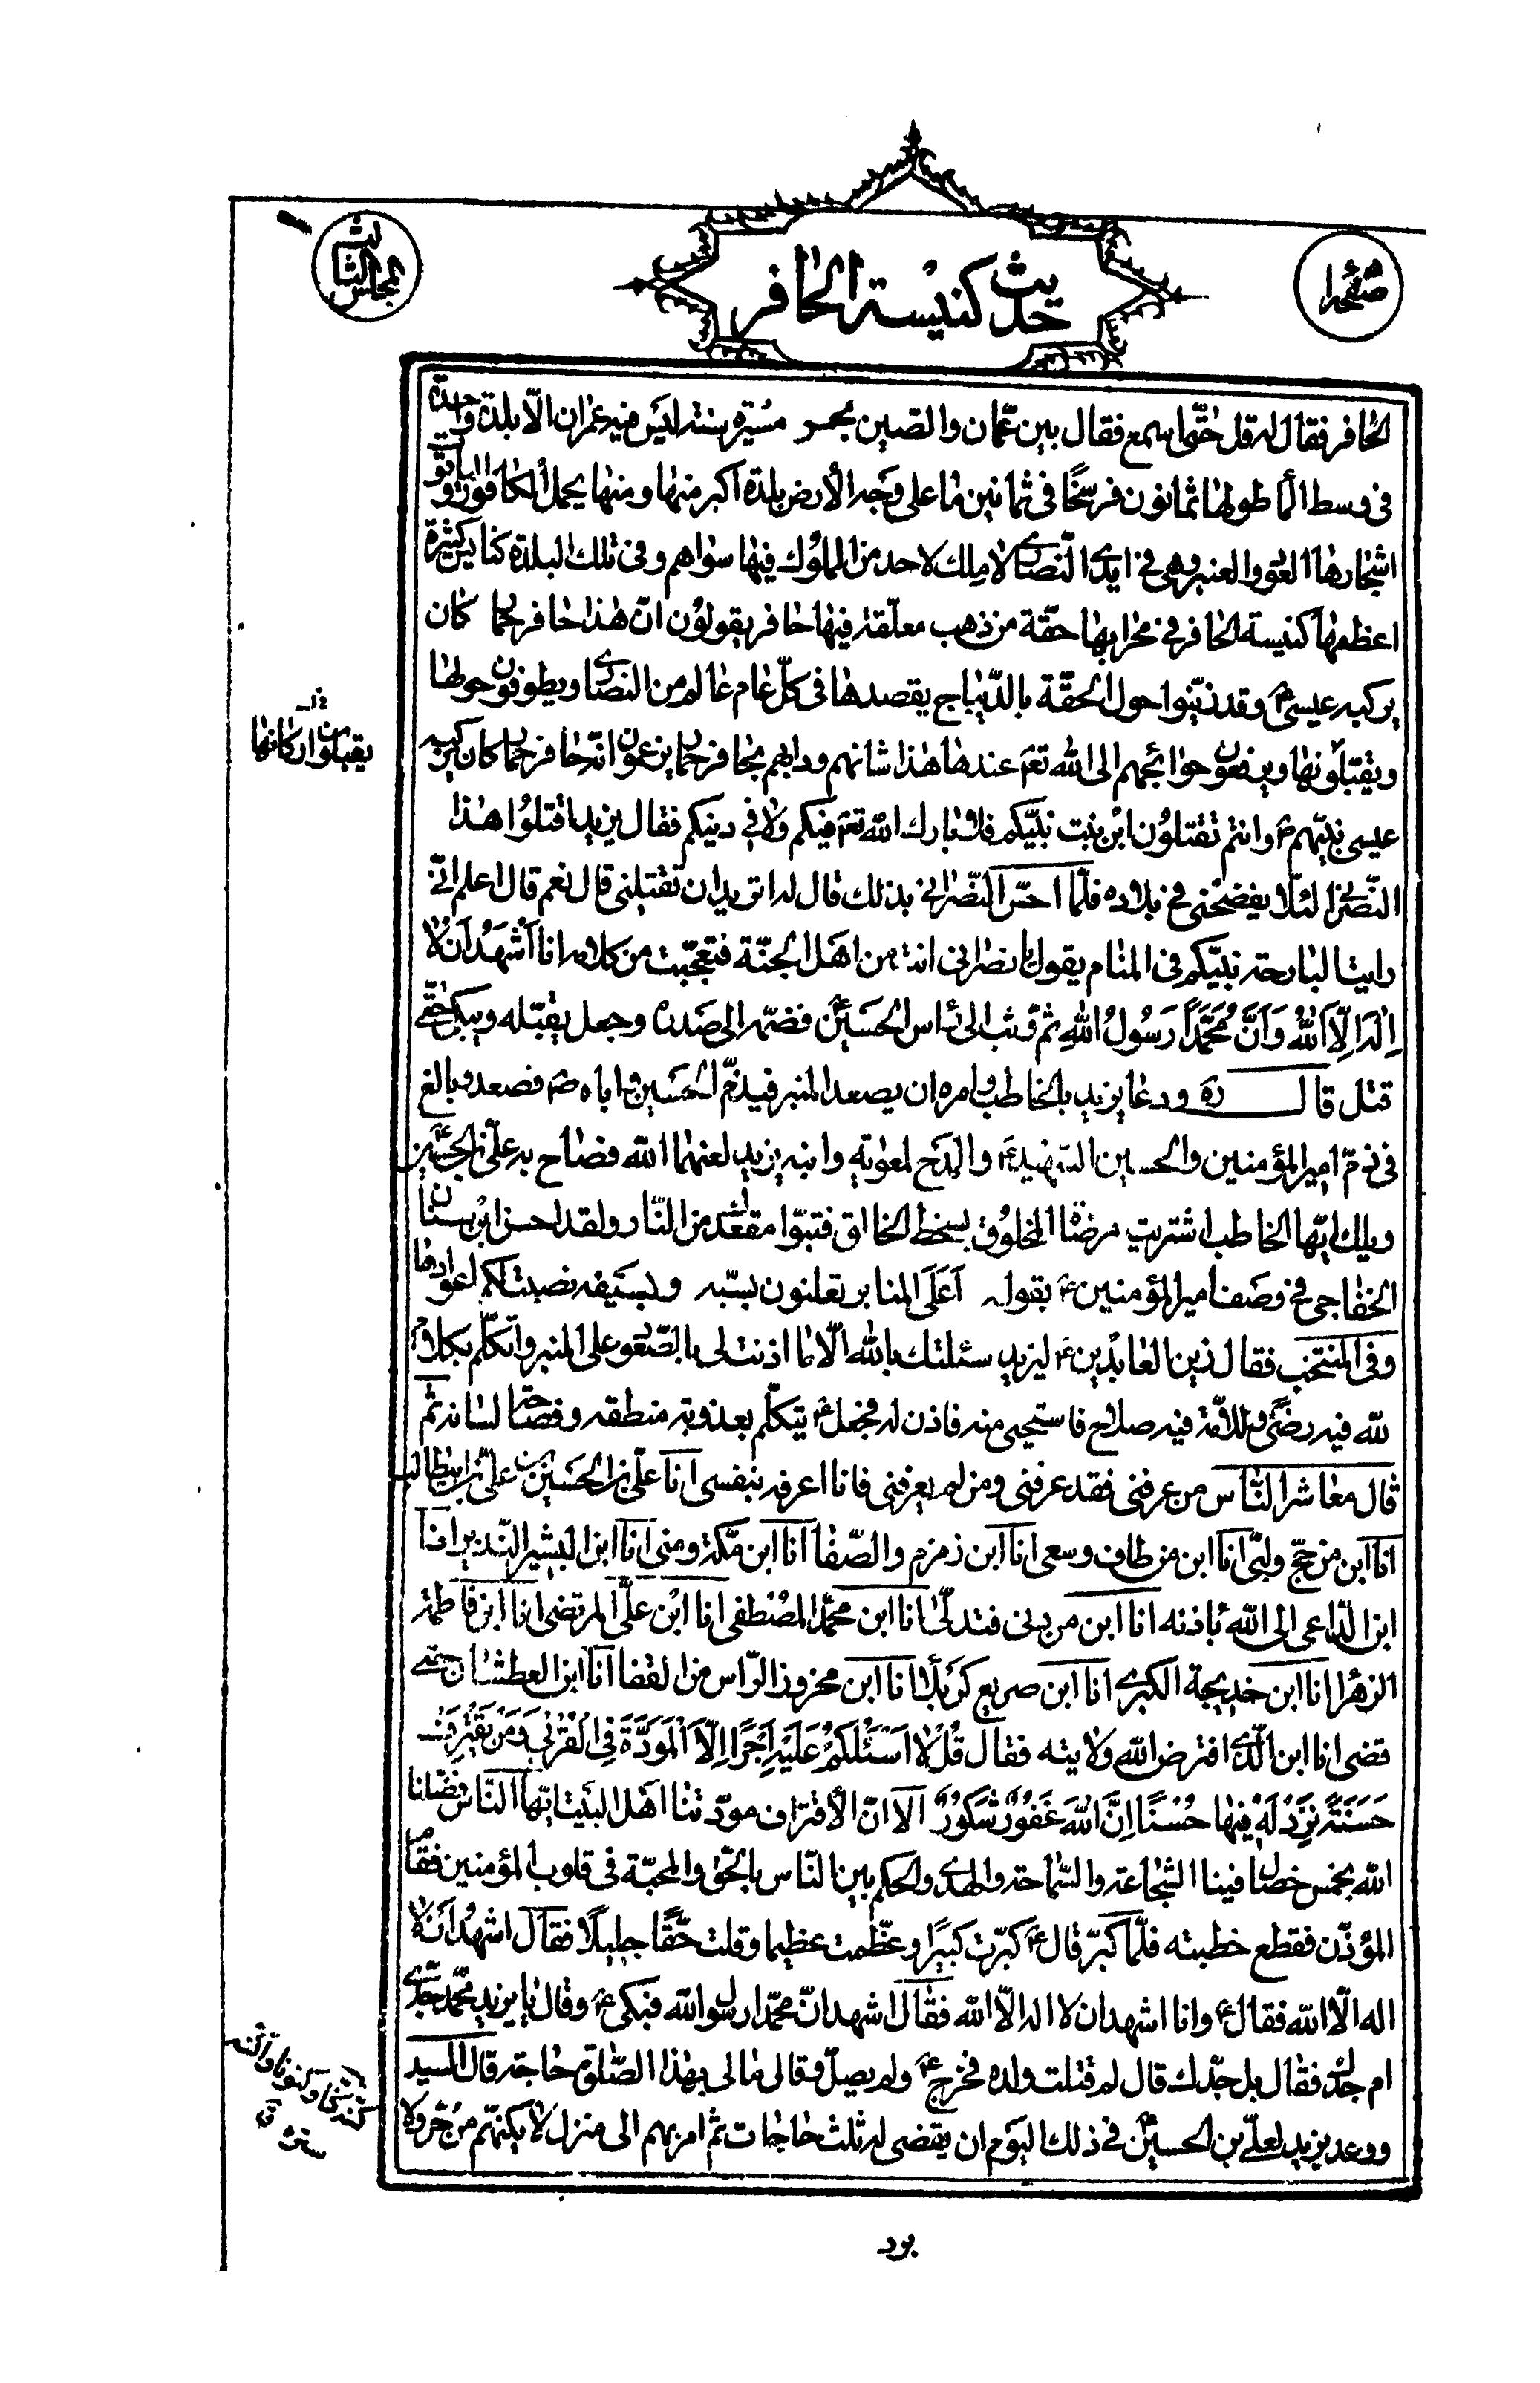 المجلس الثالث
حديث كنيسة الحافر
صفر
الحافر فقال له قل حتى اسمع فقال بين عمان والصين بحر مسيره سنة ليس فيه عمران الا بلدة واحدة
فى وسط الماء طولها ثمانون فرسخًا فى ثمانين ما على وجه الأرض بلدة اكبر منها ومنها يحمل الكافور والياقوت
اشجارها العود والعنبر وهى فى ايدى النصارى لا ملك لاحد من الملوك فيها سواهم وفى تلك البلدة كنايس كثيرة
اعظمها كنيسة الحافر فى محرابها حقة من ذهب معلقة فيها حافر يقولون ان هذا حافر حمار كان
يركبه عيسى وقد زينوا حول الحقة بالديباج يقصدها فى كل عام عالم من النصارى ويطوفون حولها
ويقبلونها ويرفعون حوائجهم الى الله تع عندها هذا شانهم ودابهم بحافر حمار يزعمون انه حافر حمار كان يركبه
يقبلون اركانها
عيسى نبيهم وانتم تقتلون ابن بنت نبيكم فلا بارك الله تع فيكم ولا فى دينكم فقال يزيد اقتلوا هذا
النصرانى لئلا يفضحنى فى بلاده فلما احس النصرانى بذلك قال له اتريد ان تقتلنى قال نعم قال اعلم انى
رايت البارحة نبيكم فى المنام يقول يا نصرانى انت من اهل الجنة فتعجبت من كلامه انا أشهد أن لا
إله إلّا الله وَأنَّ مُحَمَّدًا رَسُولُ اللهِ ثم وثب الى راس الحسين ع فضمه الى صدره وجعل يقبله ويبكى حتى
قتل قال ره ودعا يزيد بالخاطب وامره ان يصعد المنبر فيذم الحسين و اباه ص فصعد وبالغ
فى ذم امير المؤمنين والحسين الشهيد ع والمدح لمعوية وابنه يزيد لعنهما الله فصاح به على بن الحسين ع
ويلك ايها الخاطب اشتريت مرضاة المخلوق بسخط الخالق فتبوّا مقعدك من النار ولقد احسن ابن سنان
الخفاجى فى وصف امير المؤمنين ع بقوله أعلى المنابر تعلنون بسبّه وبسيفه نصبت لكم اعوادها
وفى المنتخب فقال زين العابدين ع ليزيد سئلتك بالله الا ما اذنت لى بالصعود على المنبر واتكلم بكلام
لله فيه رضى وللامة فيه صلاح فاستحيى منه فاذن له فجعل ع يتكلم بعذوبة منطقه وفصاحة لسانه ثم
قال معاشر الناس من عرفنى فقد عرفنى ومن لم يعرفنى فانا اعرفه بنفسى انا على بن الحسين بن على بن ابيطالب
انا ابن من حج ولبّى انا ابن من طاف وسعى انا ابن زمزم والصفا انا ابن مكة ومنى انا ابن البشير النذير انا
ابن الداعى الى الله باذنه انا ابن من دنى فتدلّى انا ابن محمد المصطفى انا ابن على المرتضى انا ابن فاطمة
الزهرا انا ابن خديجة الكبرى انا ابن صريع كربلا انا ابن محزوز الراس من القفا انا ابن العطشان حتى
قضى انا ابن الذى افترض الله ولايته فقال قُلْ لا اسئلكُمْ عَلَيْهِ أَجْرًا إِلّا الْمَوَدَّةَ فِى الْقُرْبى وَمَنْ يَقْتَرِفْ
حَسَنَةً نَزِدْ لَهُ فِيْها حُسْنًا إِنَّ اللهَ غَفُورٌ شَكُورٌ الا ان الأقتراف مودتنا اهل البيت ايها الناس فضلنا
الله بخمس خصال فينا الشجاعة والسماحة والهدى والحكم بين الناس بالحق والمحبة فى قلوب المؤمنين فقام
المؤذن فقطع خطبته فلما كبر قال ع كبرت كبيرًا وعظمت عظيما وقلت حقًا جليلًا فقال اشهد ان لا
اله الا الله فقال ع وانا اشهد ان لا اله الا الله فقال اشهد ان محمدا رسول الله فبكى ع وقال يا يزيد محمد جدى
ام جدك فقال بل جدك قال لم قتلت ولده فخرج ع ولم يصل وقال مالى بهذا الصلوة حاجة قال السيد
ووعد يزيد لعلى بن الحسين ع فى ذلك اليوم ان يقضى له ثلث حاجات ثم امر بهم الى منزل لا يكنهم من حر ولا
برد